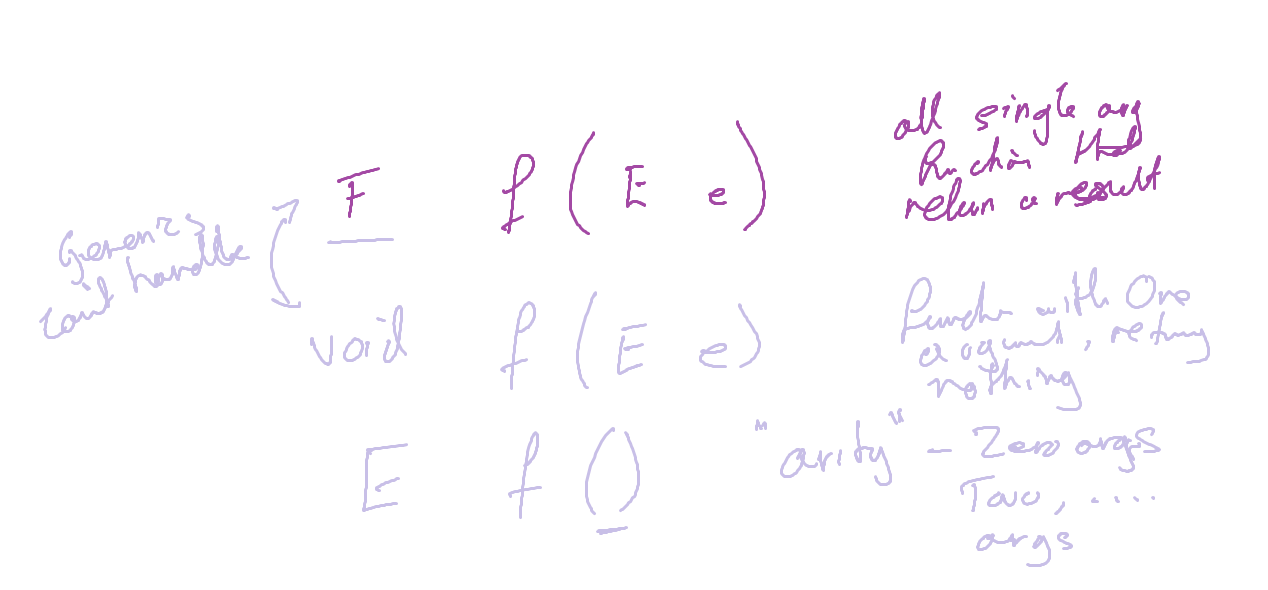 all single arg
F f ( E e ) function that
return a result
Generics
can't handle
void f ( E e ) function with One
argument, returning
nothing
E f () "arity" - Zero args
Two, ....
args